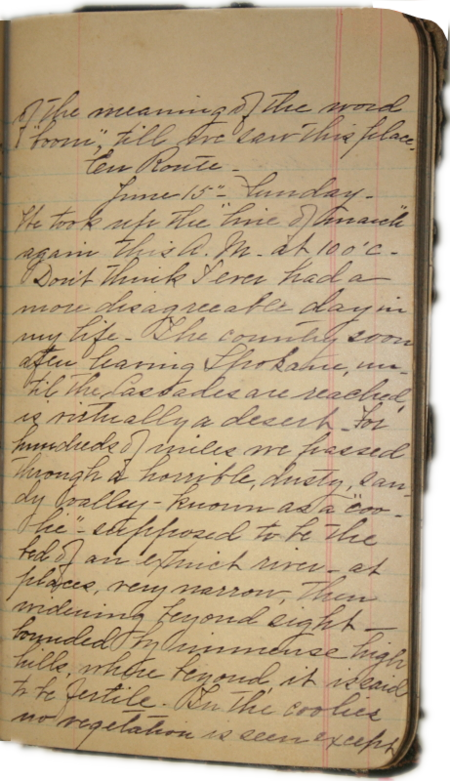 of the meaning of the word
"boom", till we saw this place.
En Route -
June 15" - Sunday -
We took up the "line of march"
again this A. M. at 10 o'c -
Don't think I ever had a
more disagreeable day in
my life - The country soon
after leaving Spokane, un-
til the Cascades are reached,
is virtually a desert - For
hundreds of miles we passed
through a horrible, dusty, san-
dy valley - known as a "coo-
lie" - supposed to be the
bed of an extinct river - at
places, very narrow, then
widening beyond sight -
bounded by immense high
hills, where beyond it is said
to be fertile - In the coolies
no vegetation is seen except